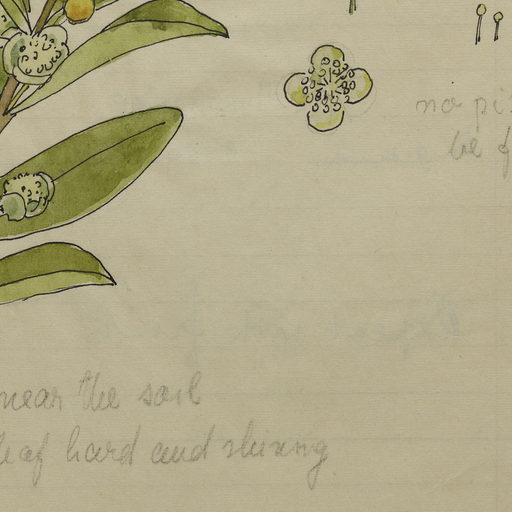 no pi
be f
near the soil
leaf hard and shining